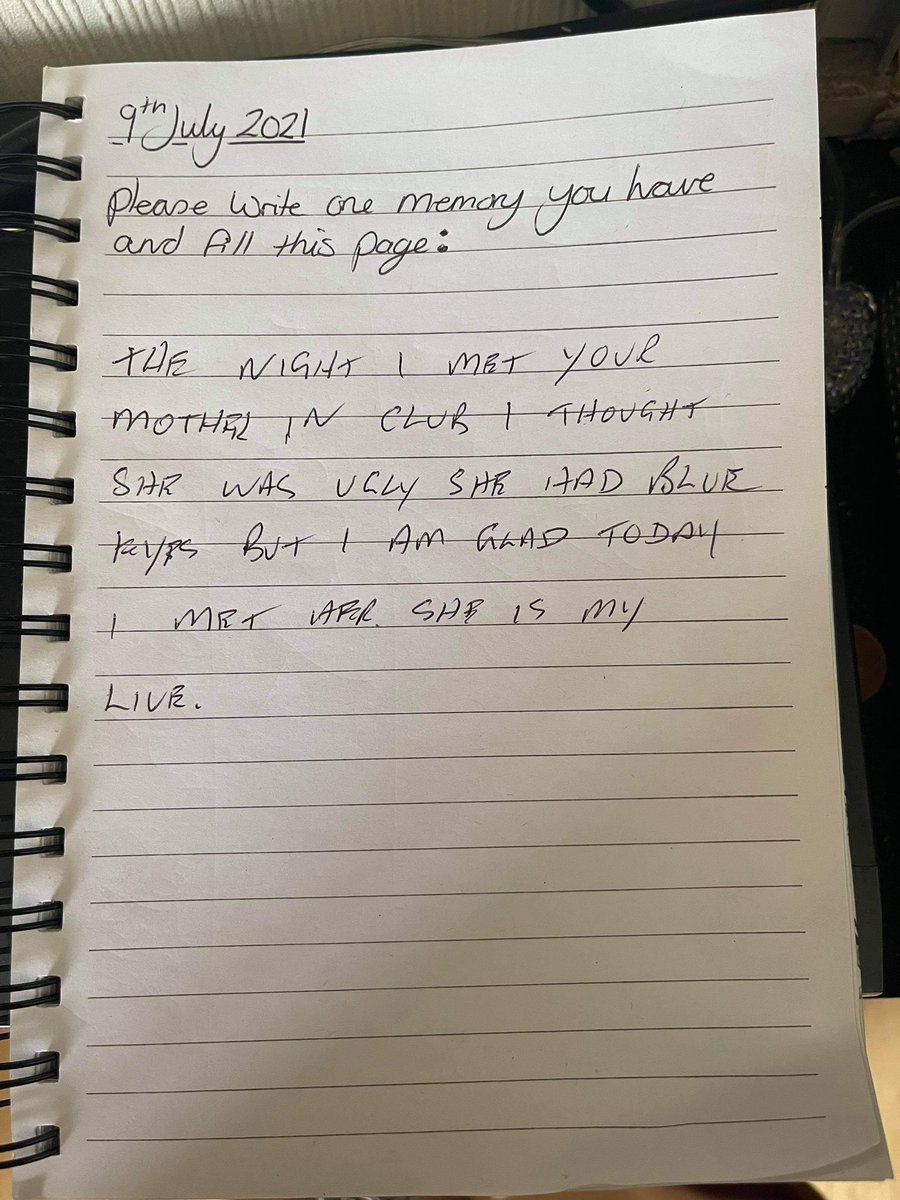 9th July 2021
Please write one memory you have
and fill this page:
THE NIGHT I MET YOUR
MOTHER IN CLUB I THOUGHT
SHE WAS UGLY SHE HAD BLUE
EYES BUT I AM GLAD TODAY
I MET HER. SHE IS MY
LIVE.